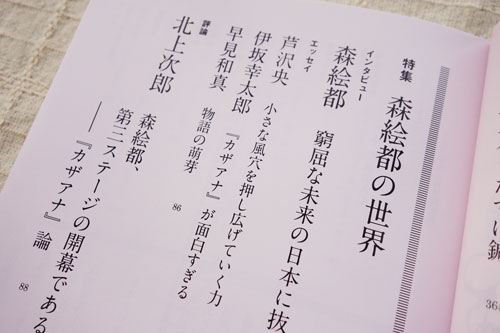 特集 森絵都の世界
インタビュー
森絵都 窮屈な未来の日本に抜
エッセイ
芦沢央 小さな風穴を押し広げていく力
伊坂幸太郎 『カザアナ』が面白すぎる
早見和真 物語の萌芽 86
評論
北上次郎 森絵都、
第三ステージの開幕である
――『カザアナ』論 88